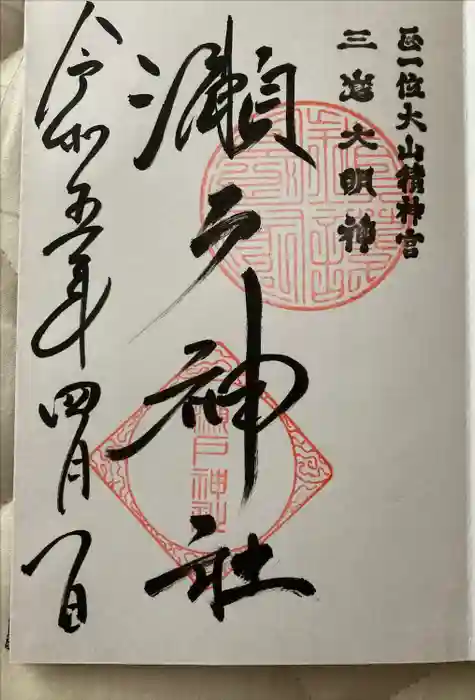 正一位大山積神宮
三嶌大明神
瀬戸神社
瀬戸神社
令和五年四月八日